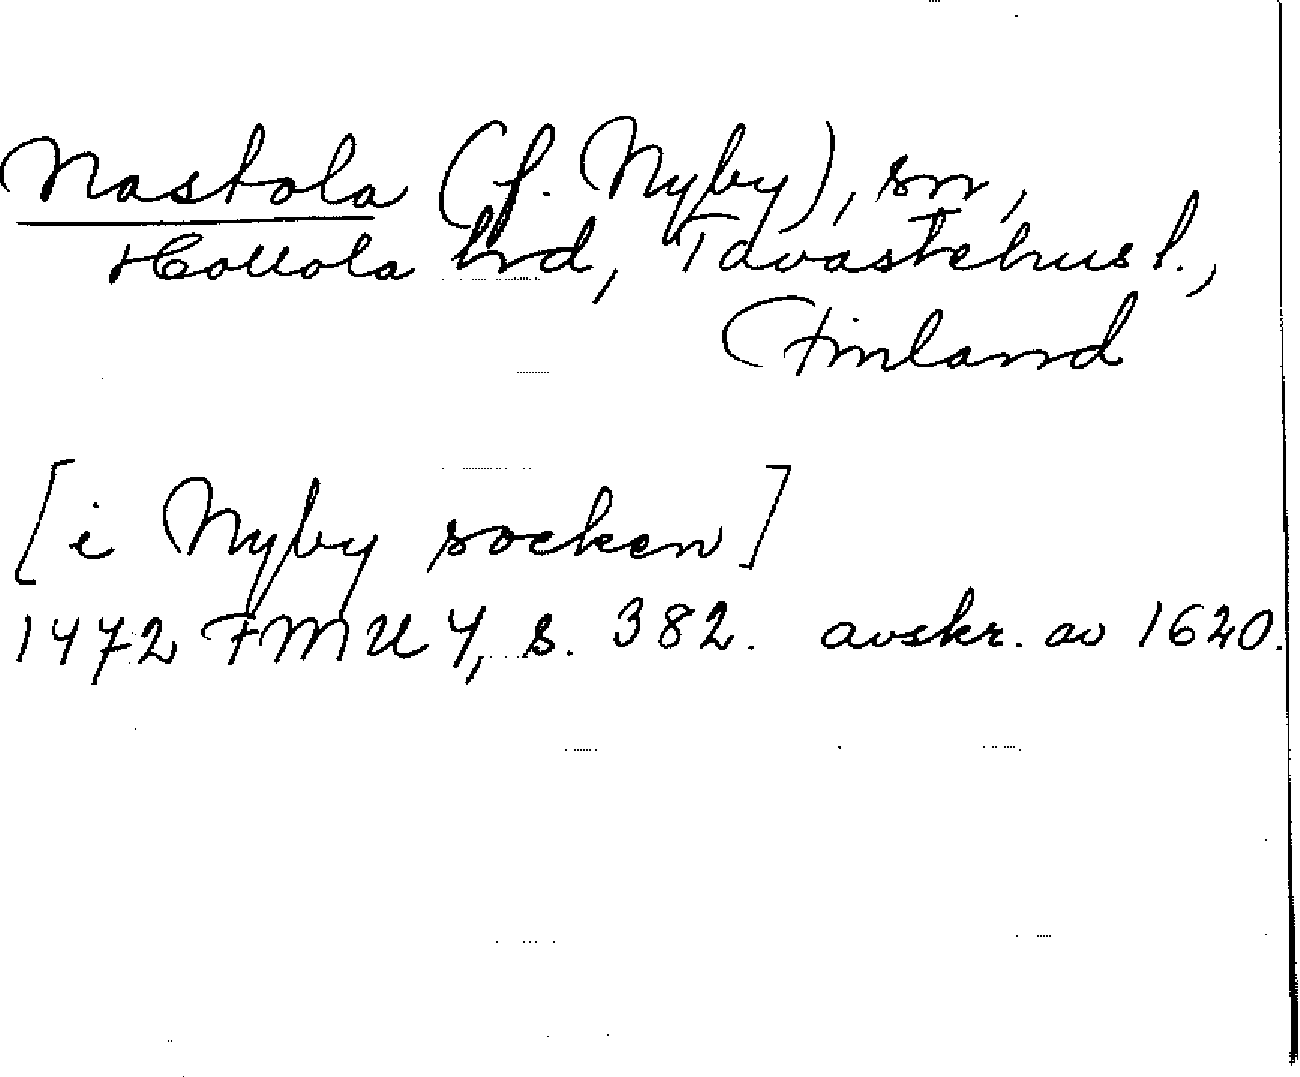 Nastola (f. Nyby), sn,
Hollola hrd, Tavastehus l.,
Finland
[i Nyby socken]
1472 FMU 4, s. 382. avskr. av 1620.